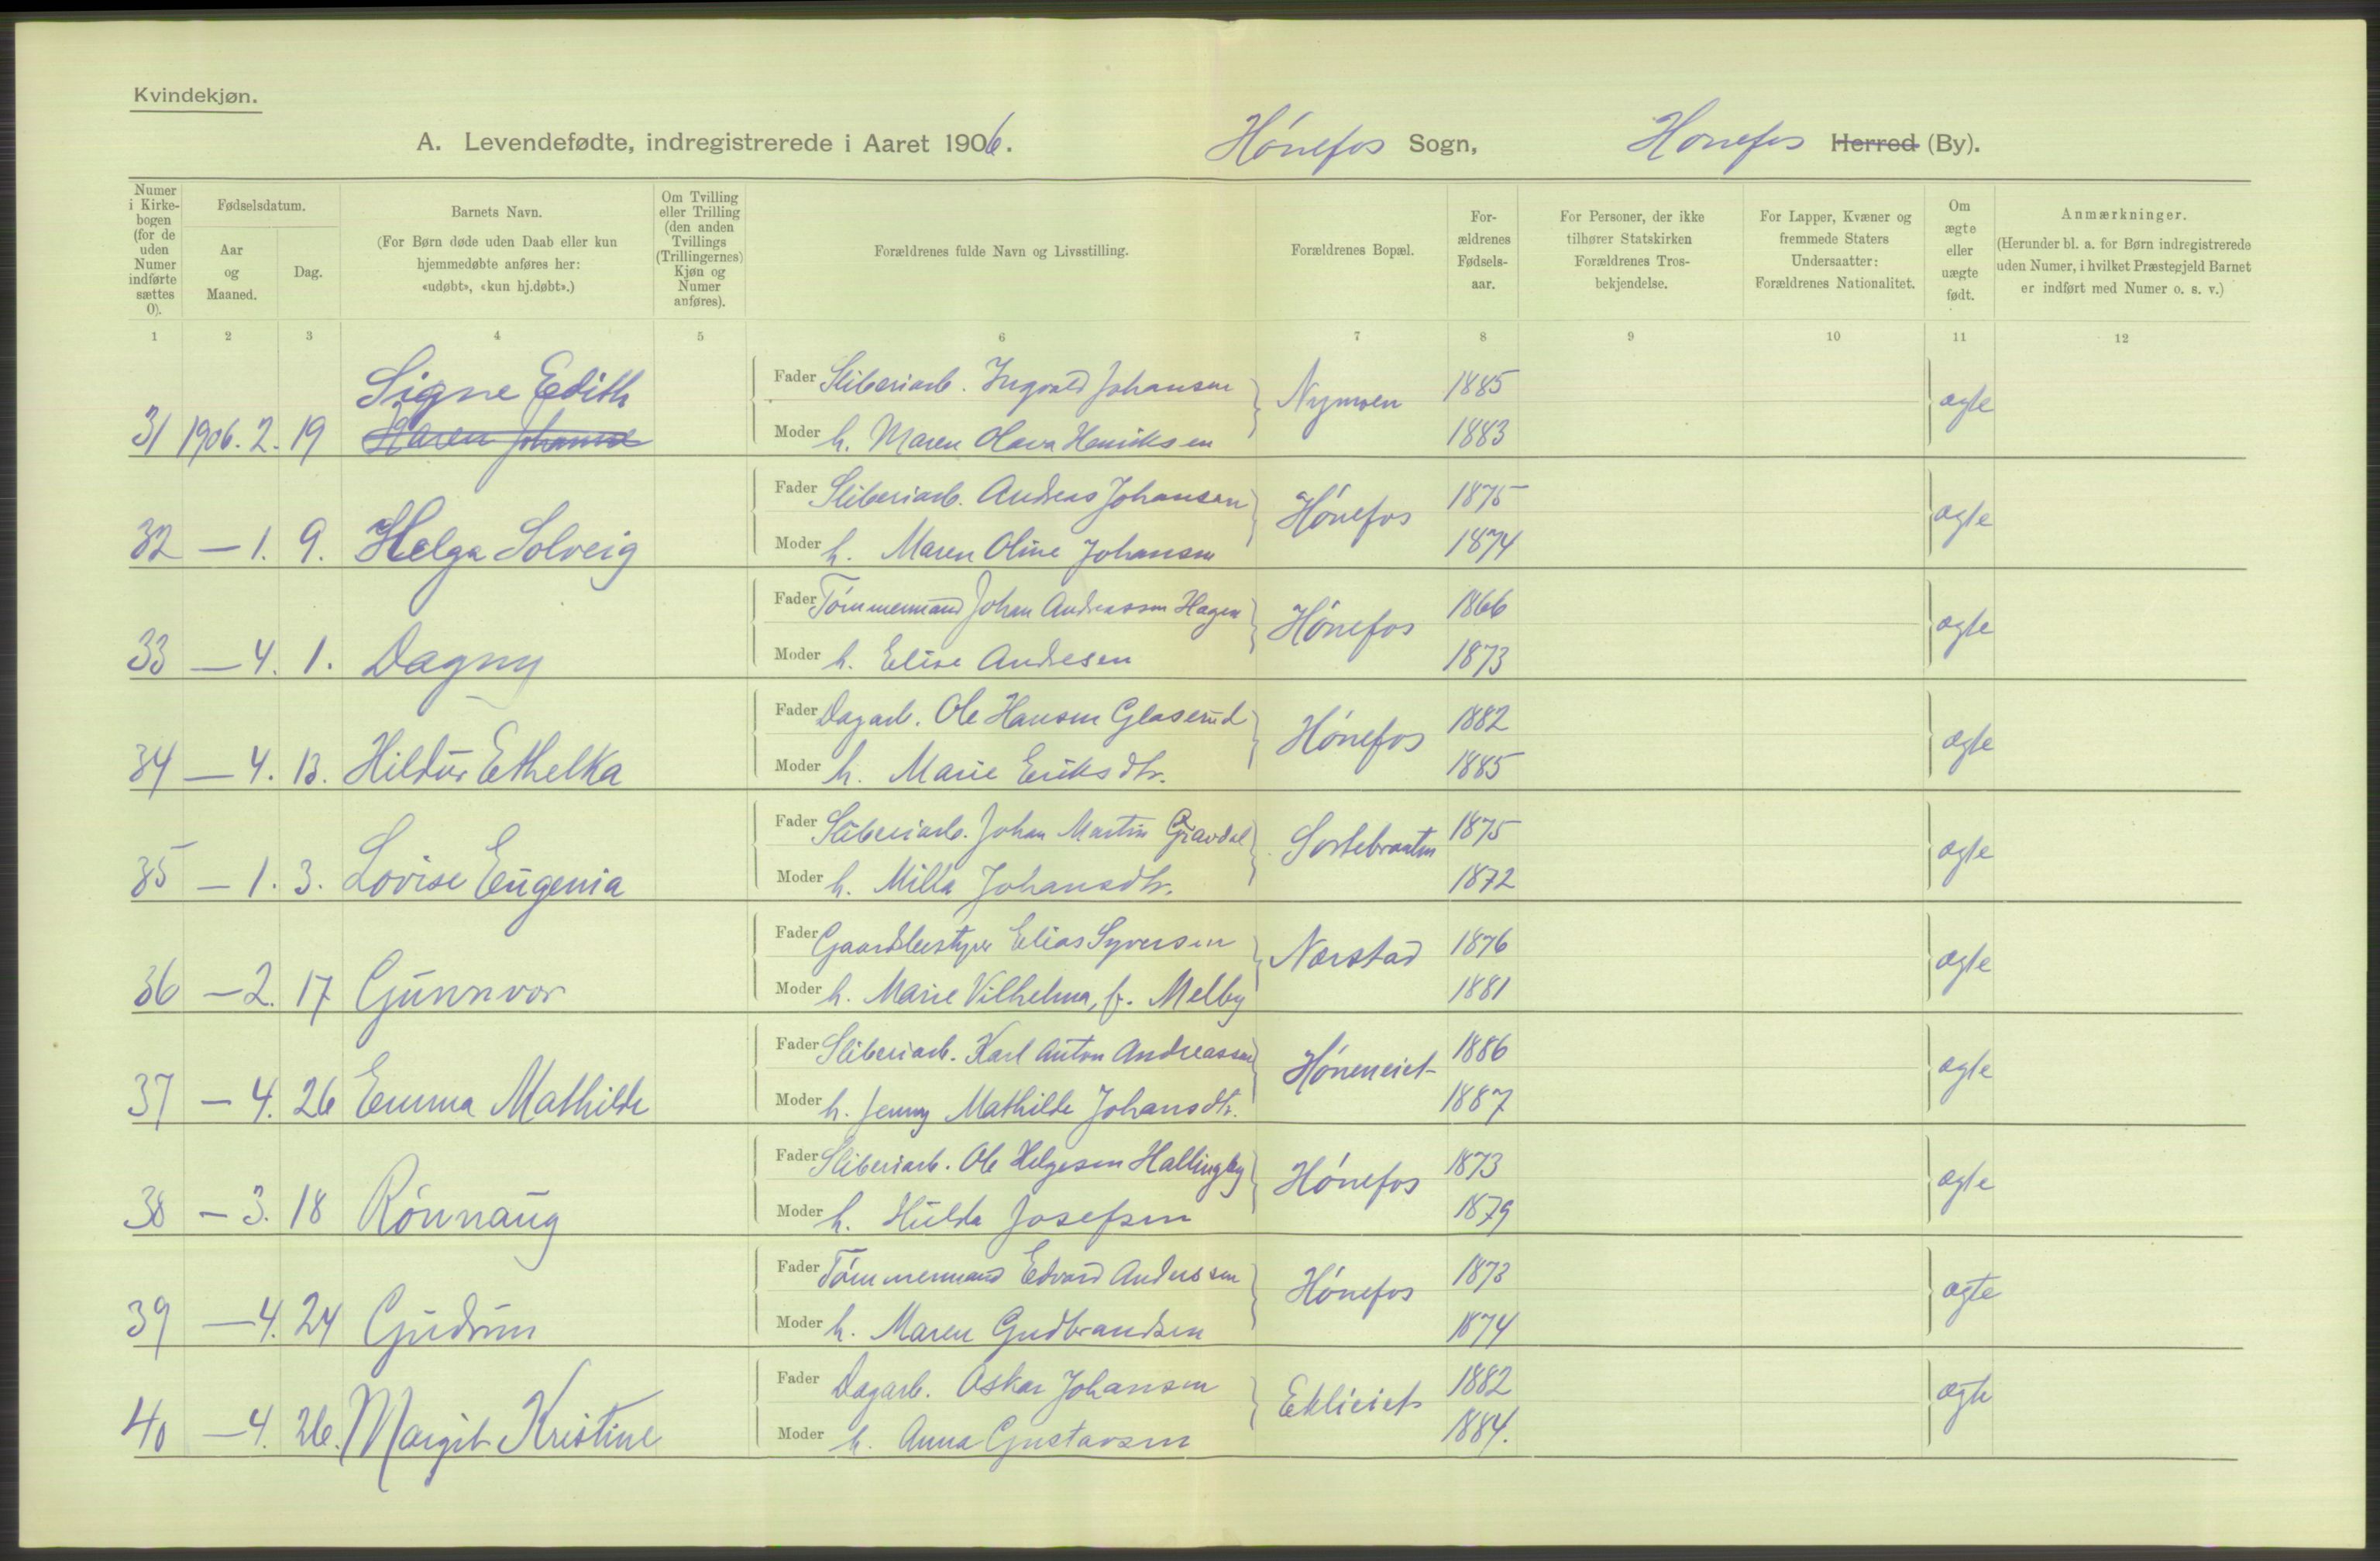 Kvindekjøn.
A. Levendefødte, indregistrerede i Aaret 1906. Hónefos Sogn, Honefos Herred (By).
Numer i Kirkebogen (for de uden Numer indførte sættes 0).
Fødselsdatum.
Aar og Maaned.
Dag.
Barnets Navn.
(For Børn døde uden Daab eller kun hjemmedøbte anføres her: «udøbt», «kun hj.døbt».)
Om Tvilling eller Trilling (den anden Tvillings (Trillingernes) Kjøn og Numer anføres).
Forældrenes fulde Navn og Livsstilling.
Forældrenes Bopæl.
Forældrenes Fødselsaar.
For Personer, der ikke tilhører Statskirken Forældrenes Trosbekjendelse.
For Lapper, Kvæner og fremmede Staters Undersaatter: Forældrenes Nationalitet.
Om ægte eller uægte født.
Anmærkninger.
(Herunder bl. a. for Børn indregistrerede uden Numer, i hvilket Præstegjeld Barnet er indført med Numer o. s. v.)
1 2 3 4 5 6 7 8 9 10 11 12
Signe Edith Fader Sliberiarb. Ingvald Johansen Nymoen 1885 ægte
31 1906. 2. 19 Karen Johanne Moder h. Maren Olava Henriksen 1883
Fader Sliberiarb. Andreas Johansen Hónefos 1875 ægte
32 — 1. 9. Helga Solveig Moder h. Maren Oline Johansen 1874
Fader Tómmermand Johan Andreassen Hagen Hónefos 1866 ægte
33 — 4. 1. Dagny Moder h. Elise Andresen 1873
Fader Dagarb. Ole Hansen Glaserud Hónefos 1882 ægte
34 — 4. 13. Hildur Ethelka Moder h. Marie Eriksdtr. 1885
Fader Sliberiarb. Johan Martin Gravdal Sortebraaten 1875 ægte
35 — 1. 3. Lovise Eugenia Moder h. Milla Johansdtr. 1872
Fader Gaardsbestyrer Elias Syversen Nærstad 1876 ægte
36 — 2. 17 Gunnvor Moder h. Marie Vilhelma, f. Melby 1881
Fader Sliberiarb. Karl Anton Andreassen Hóneneiet 1886 ægte
37 — 4. 26 Emma Mathilde Moder h. Jenny Mathilde Johansdtr. 1887
Fader Sliberiarb. Ole Helgesen Hallingby Hónefos 1873 ægte
38 — 3. 18 Rónnaug Moder h. Hulda Josefsen 1879
Fader Tómmermand Edvard Anderssen Hónefos 1873 ægte
39 — 4. 24 Gudrun Moder h. Maren Gudbrandsen 1874
Fader Dagarb. Oskar Johansen Eklieiet 1882 ægte
40 — 4. 26. Margit Kristine Moder h. Anna Gustavsen 1884.